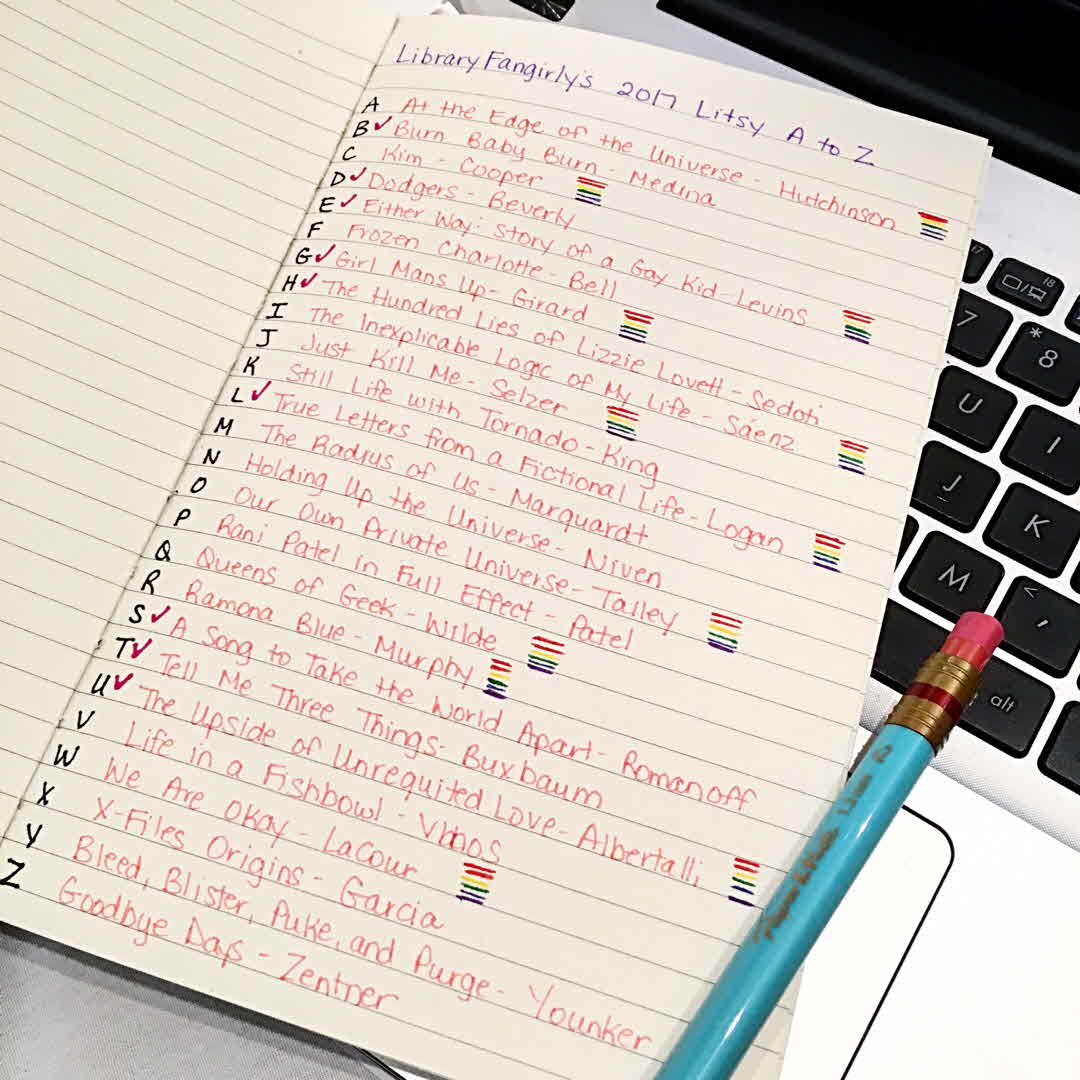 LibraryFangirly's 2017 Litsy A to Z
A At the Edge of the Universe - Hutchinson
B ✓ Burn Baby Burn - Medina
C Kim - Cooper
D ✓ Dodgers - Beverly
E ✓ Either Way: Story of a Gay Kid - Levins
F Frozen Charlotte - Bell
G ✓ Girl Mans Up - Girard
H ✓ The Hundred Lies of Lizzie Lovett - Sedoti
I The Inexplicable Logic of My Life - Sáenz
J Just Kill Me - Selzer
K Still Life with Tornado - King
L ✓ True Letters from a Fictional Life - Logan
M The Radius of Us - Marquardt
N Holding Up the Universe - Niven
O Our Own Private Universe - Talley
P Rani Patel in Full Effect - Patel
Q Queens of Geek - Wilde
R Ramona Blue - Murphy
S ✓ A Song to Take the World Apart - Romanoff
T ✓ Tell Me Three Things - Buxbaum
U ✓ The Upside of Unrequited Love - Albertalli
V Life in a Fishbowl - Vlahos
W We Are Okay - LaCour
X X-Files Origins - Garcia
Y Bleed, Blister, Puke, and Purge - Younker
Z Goodbye Days - Zentner
18
7
* 8
U
I
J
K
M
< ,
alt